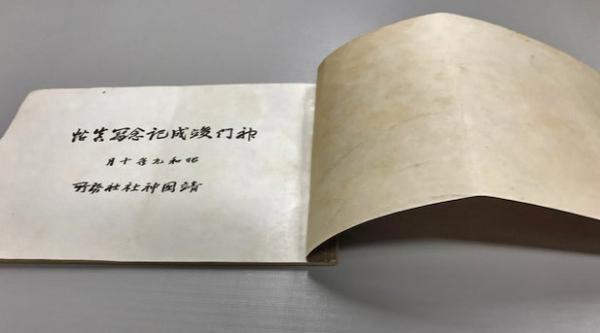 神门竣成記念写真帖
昭和九年十月
靖国神社社務所